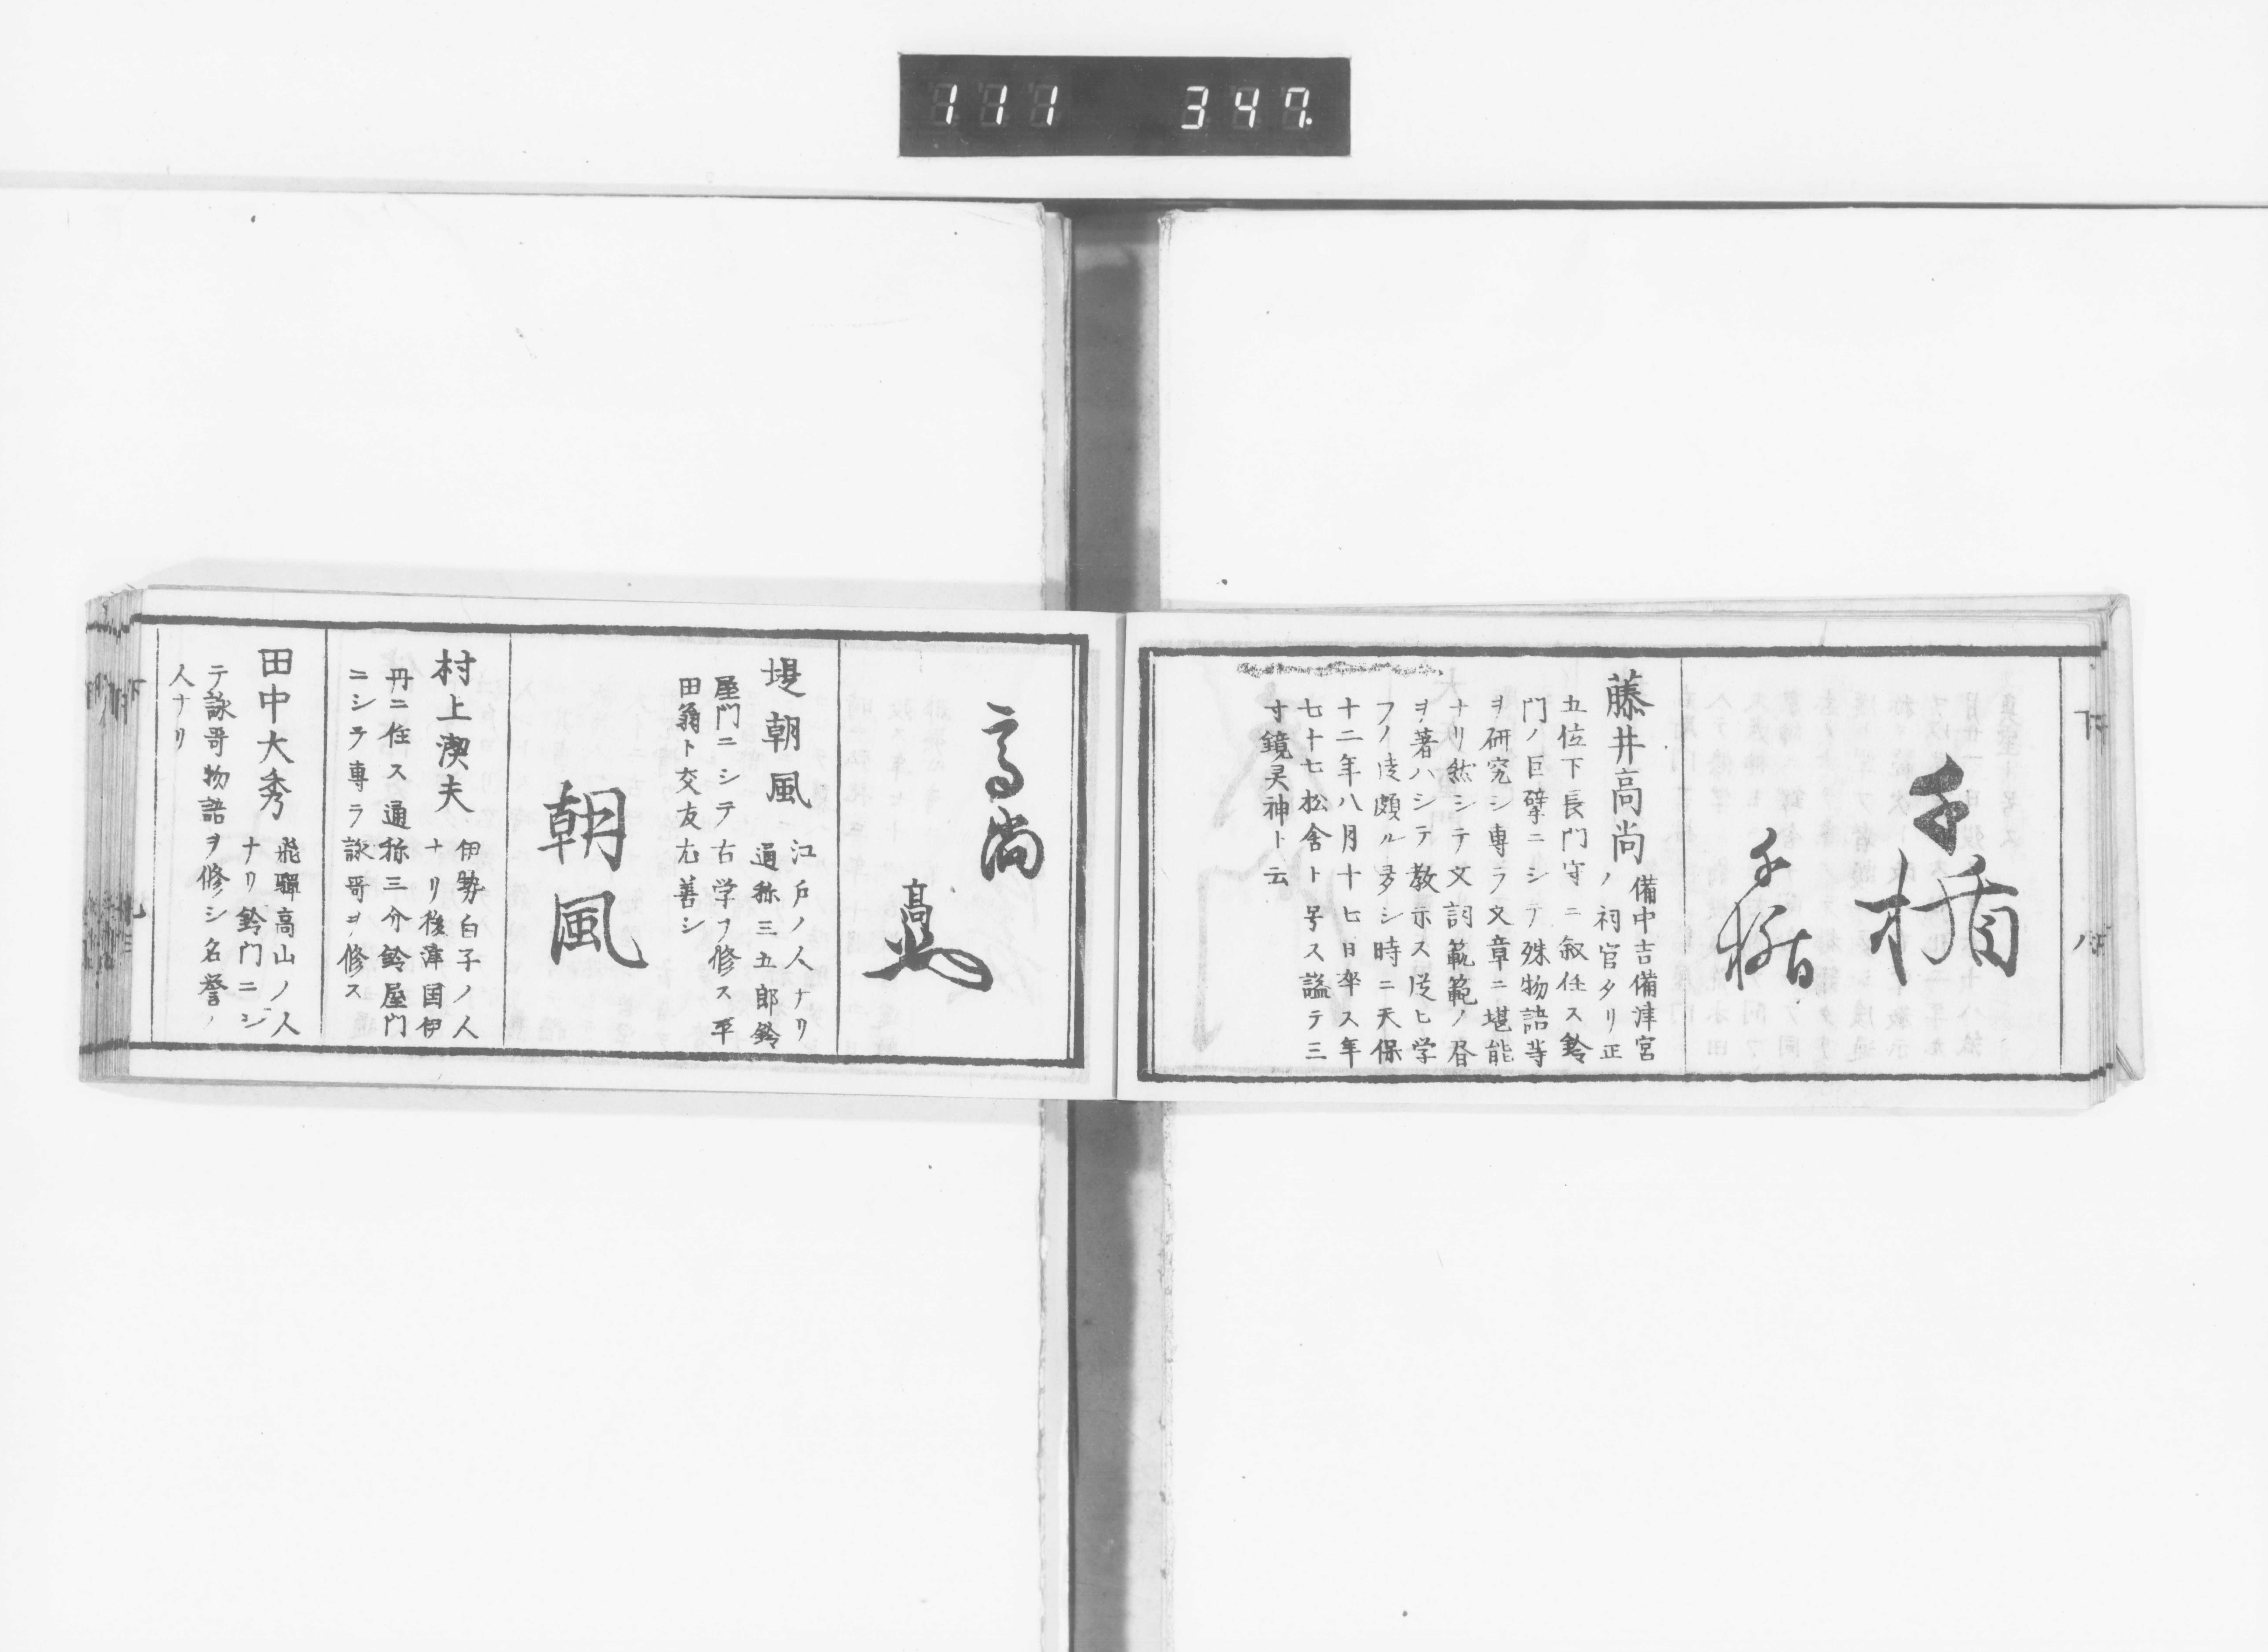 111 347.
下
千楯
千楯
藤井高尚 備中吉備津宮
ノ祠官タリ正
五位下長門守ニ叙任ス鈴
門ノ巨擘ニシテ殊物語等
ヲ研究シ専ラ文章ニ堪能
ナリ然シテ文詞範範ノ昏
ヲ著ハシテ教示ス従ヒ学
フノ徒頗ル多シ時ニ天保
十二年八月十七日卒ス年
七十七松舎ト号ス謚テ三
寸鏡灵神ト云
高尚
高尚
堤朝風 江戸ノ人ナリ
通称三五郎鈴
屋門ニシテ古学フ修ス平
田翁ト交友尤善シ
朝風
村上潔夫 伊勢白子ノ人
ナリ後津国伊
丹ニ住ス通称三介鈴屋門
ニシテ専ラ詠哥ヲ修ス
田中大秀 飛騨高山ノ人
ナリ鈴門ニシ
テ詠哥物語ヲ修シ名誉ノ
人ナリ